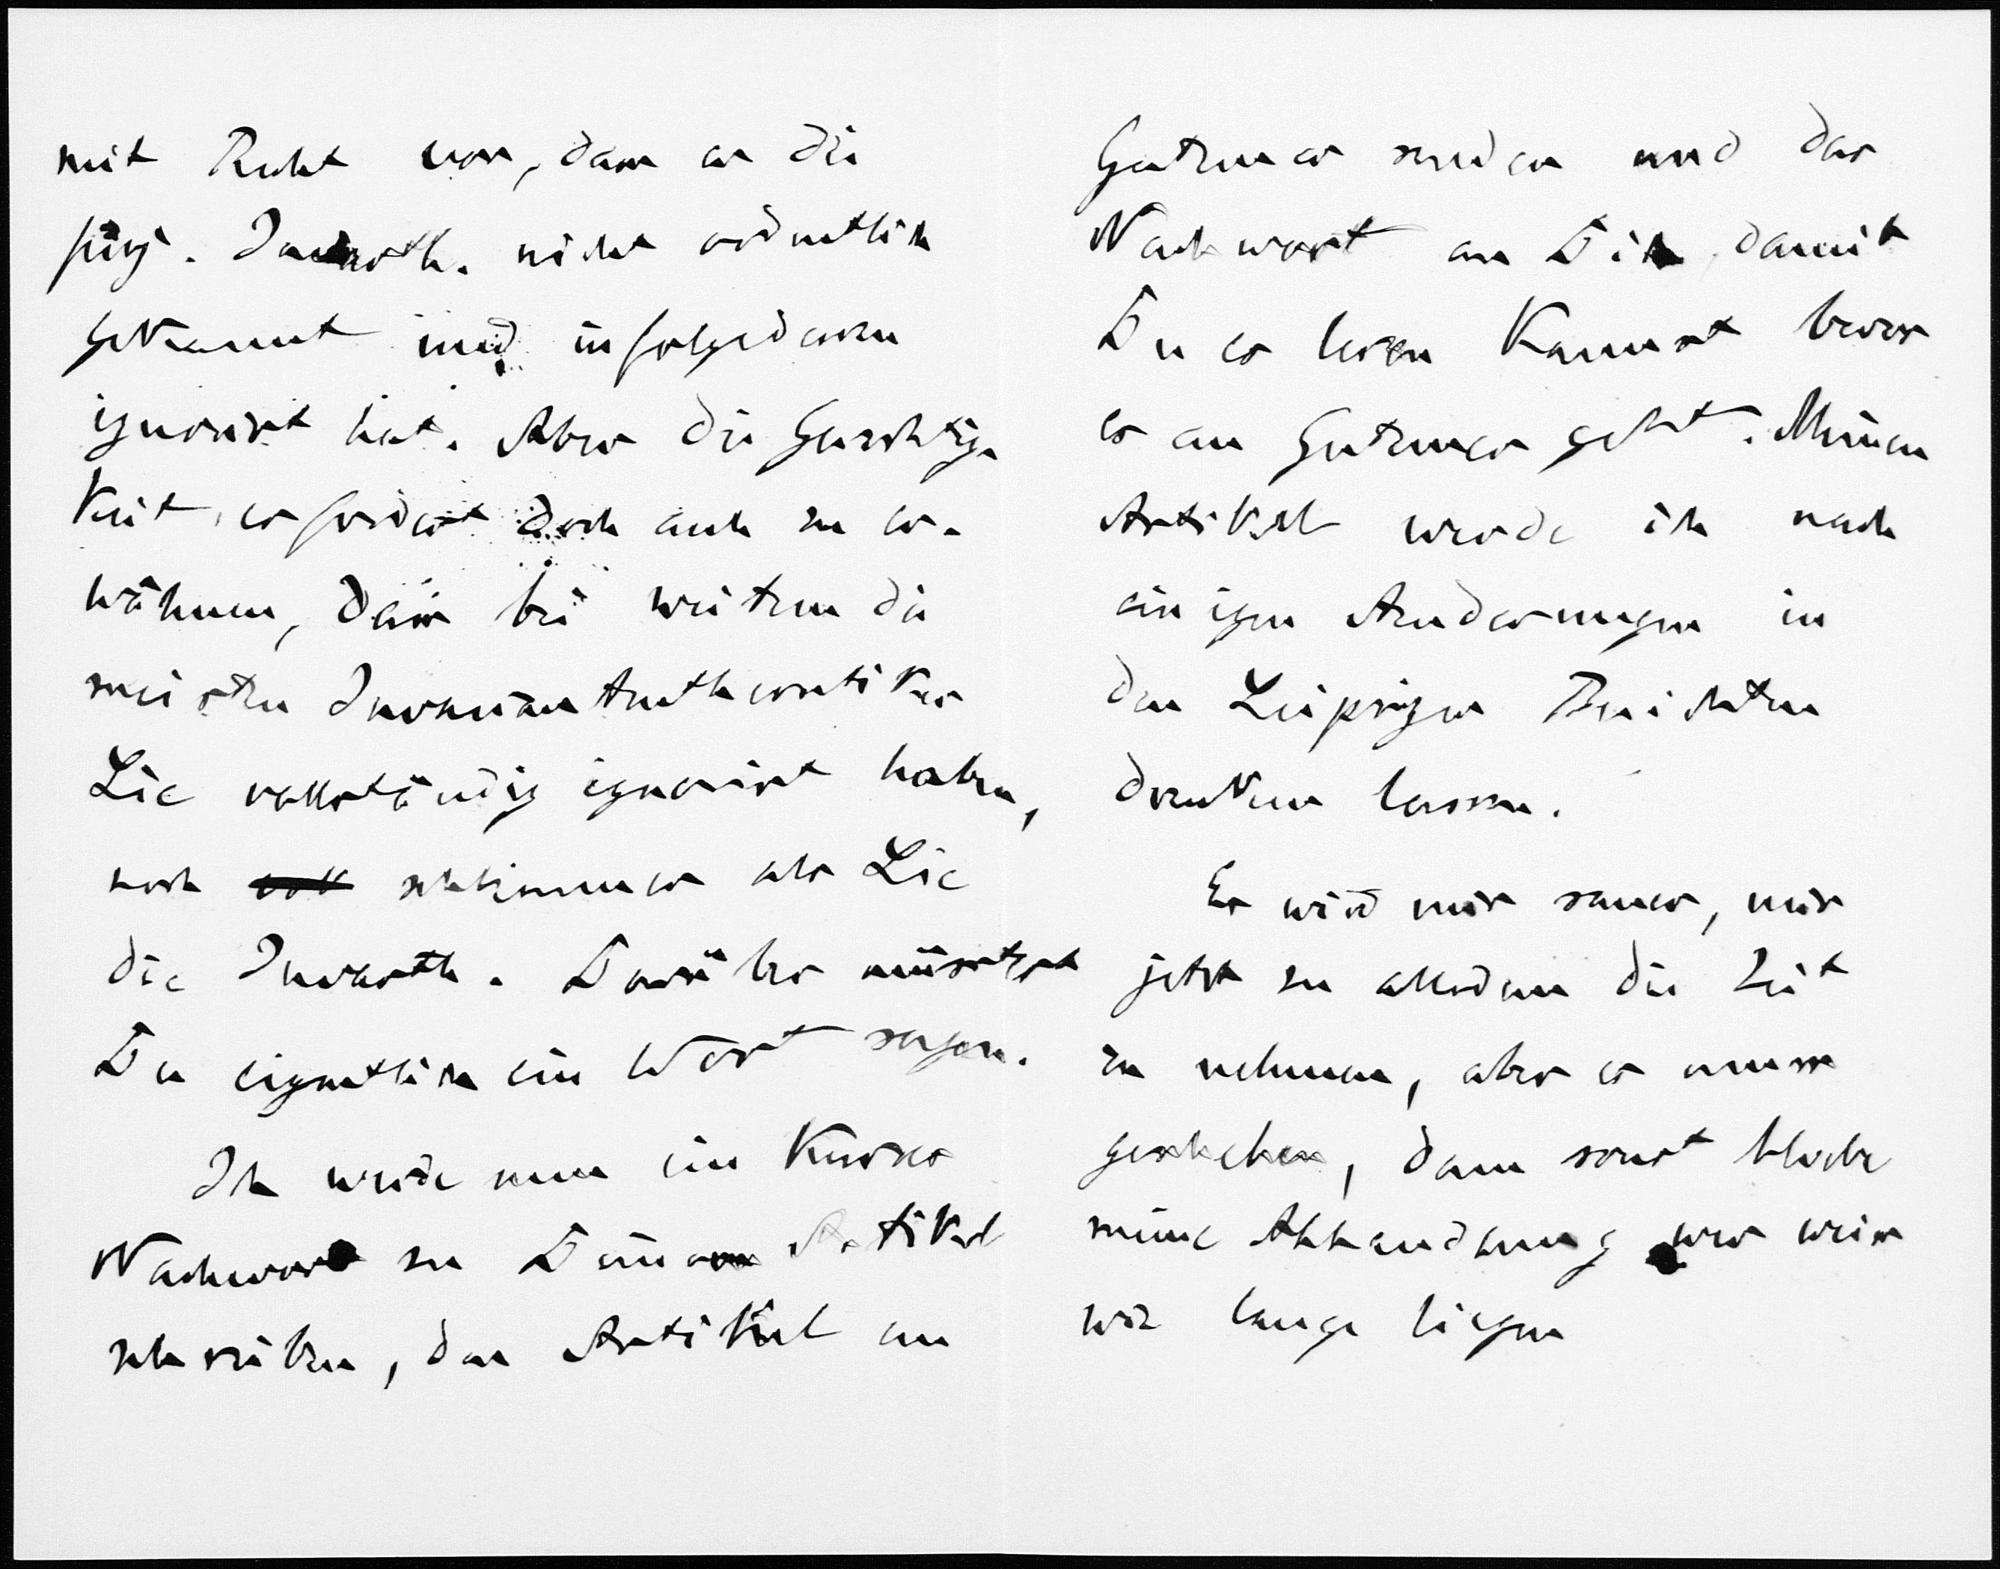 mit Recht vor, dass er die
proj. Invarth. nicht ordentlich
gekannt und infolgedessen
ignorirt hat. Aber die Gerechtig-
keit erfordert doch auch zu er-
wähnen, dass bei weitem die
meisten Invariantentheoretiker
Lie vollständig ignorirt haben,
noch schlimmer als Lie
die Invarth. Darüber müsstest
Du eigentlich ein Wort sagen.
Ich werde nun ein kurzes
Nachwort zu Deinem Artikel
schreiben, den Artikel an
Gutzmer senden und das
Nachwort an Dich, damit
Du es lesen kannst bevor
es an Gutzmer geht. Meinen
Artikel werde ich nach
einigen Aenderungen in
den Leipziger Berichten
drucken lassen.
Es wird mir sauer, mir
jetzt zu alledem die Zeit
zu nehmen, aber es muss
geschehen, denn sonst bliebe
meine Abhandlung wer weiss
wie lange liegen